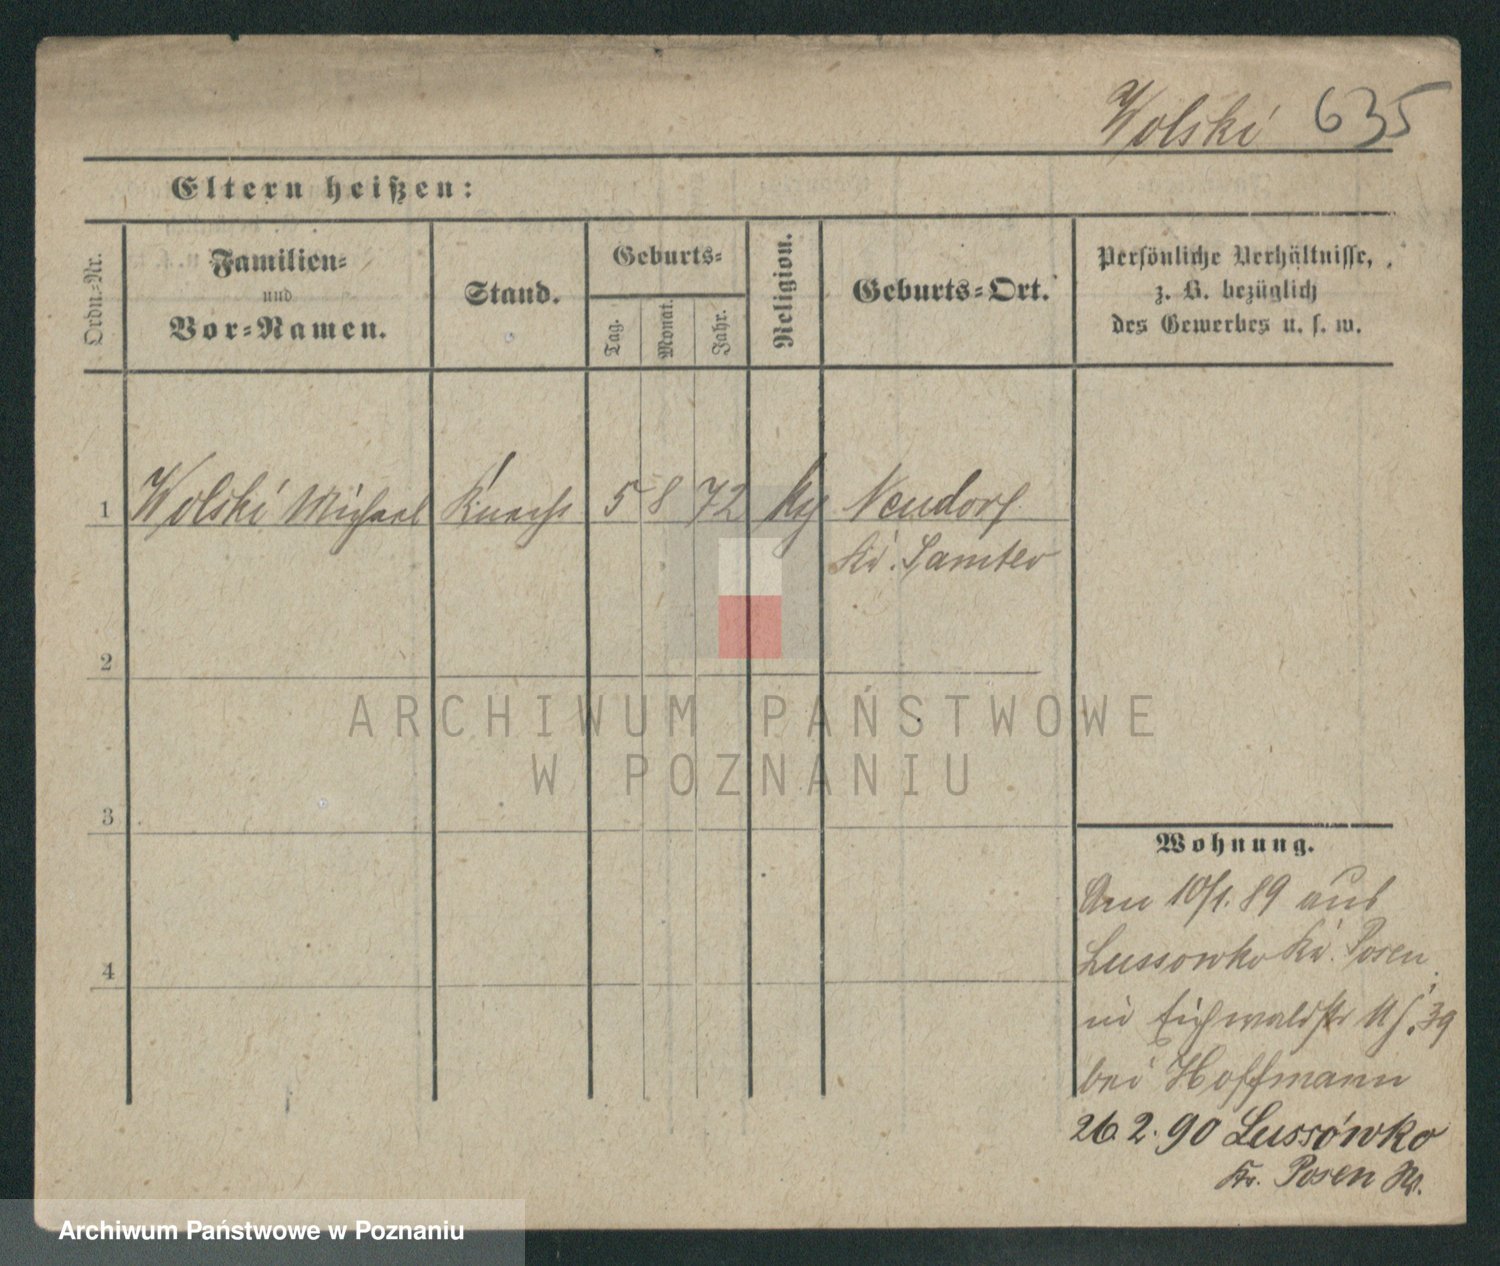 Wolski 635
Eltern heißen:
Ordn.-Nr.
Familien-
und
Vor-Namen.
Stand.
Geburts-
Tag.
Monat.
Jahr.
Religion.
Geburts-Ort.
Persönliche Verhältnisse,
z. B. bezüglich
des Gewerbes u. s. w.
1 Wolski Michael Knecht 5 8 72 Neudorf
Kr. Samter
2
3
4
ARCHIWUM PAŃSTWOWE
W POZNANIU
Wohnung.
Am 10/1. 89 aus
Lussowko Kr. Posen
in Eichwaldstr 39
bei Hoffmann
26.2.90 Lussówko
Kr. Posen W.
Archiwum Państwowe w Poznaniu